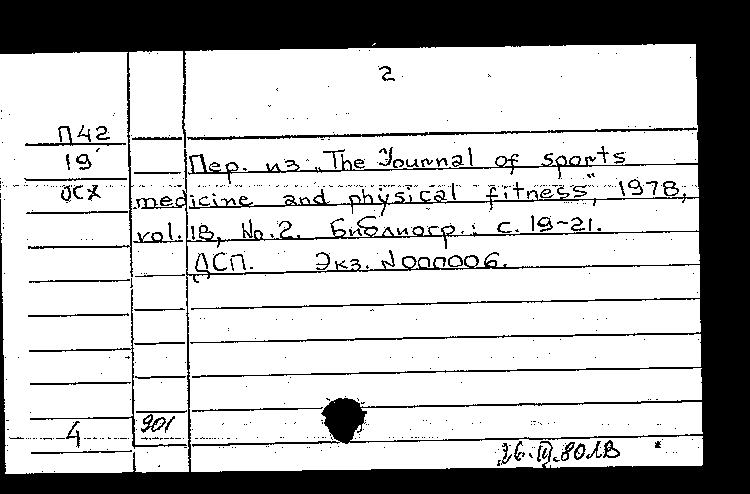 2
П42
19
ОСХ
Пер. из „The Journal of sports
medicine and physical fitness", 1978,
vol. 18, No. 2. Библиогр.: с. 19-21.
ДСП. Экз. N000006.
4
901
26.IV.80